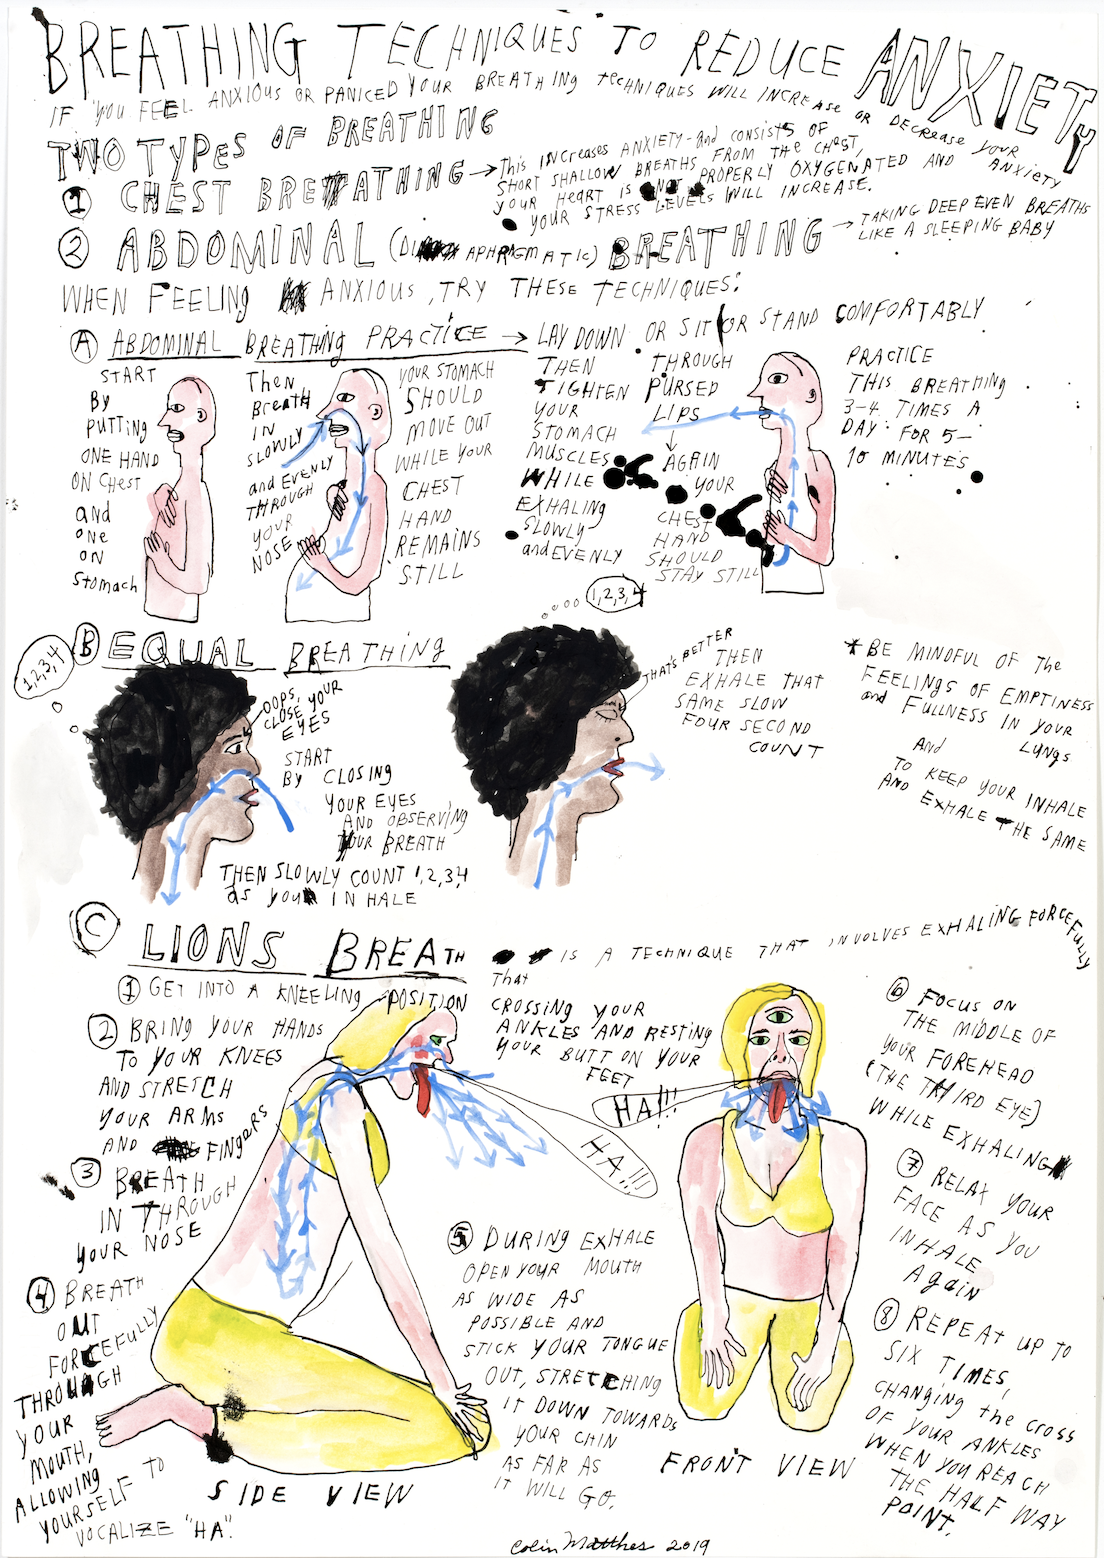 BREATHING TECHNIQUES TO REDUCE ANXIETY
IF YOU FEEL ANXIOUS OR PANICED YOUR BREATHING TECHNIQUES WILL INCREASE OR DECREASE YOUR ANXIETY
TWO TYPES OF BREATHING
1 CHEST BREATHING → This INCREASES ANXIETY-and CONSISTS OF
SHORT SHALLOW BREATHS FROM THE CHEST,
YOUR HEART IS NOT PROPERLY OXYGENATED AND
YOUR STRESS LEVELS WILL INCREASE.
2 ABDOMINAL (DIAPHRAGMATIC) BREATHING → TAKING DEEP EVEN BREATHS
LIKE A SLEEPING BABY
WHEN FEELING ANXIOUS, TRY THESE TECHNIQUES:
A ABDOMINAL BREATHING PRACTICE → LAY DOWN OR SIT OR STAND COMFORTABLY
START
By
PUTTING
ONE HAND
ON CHEST
and
one
on
Stomach
Then
Breath
IN
SLOWLY
and EVENLY
THROUGH
YOUR
NOSE
YOUR STOMACH
SHOULD
MOVE OUT
WHILE YOUR
CHEST
HAND
REMAINS
STILL
THEN
TIGHTEN
YOUR
STOMACH
MUSCLES
WHILE
EXHALING
SLOWLY
and EVENLY
THROUGH
PURSED
LIPS
AGAIN
YOUR
CHEST
HAND
SHOULD
STAY STILL
PRACTICE
THIS BREATHING
3-4 TIMES A
DAY FOR 5-
10 MINUTES
B EQUAL BREATHING
1,2,3,4
OOPS,
CLOSE YOUR
EYES
START
BY CLOSING
YOUR EYES
AND OBSERVING
YOUR BREATH
THEN SLOWLY COUNT 1,2,3,4
as YOU INHALE
1,2,3,4
THAT'S BETTER
THEN
EXHALE THAT
SAME SLOW
FOUR SECOND
COUNT
* BE MINDFUL OF The
FEELINGS OF EMPTINESS
and FULLNESS IN YOUR
LUNGS
And
TO KEEP YOUR INHALE
AND EXHALE THE SAME
C LIONS BREATH IS A TECHNIQUE THAT INVOLVES EXHALING FORCEFULLY
1 GET INTO A KNEELING POSITION
That
CROSSING YOUR
ANKLES AND RESTING
YOUR BUTT ON YOUR
FEET
2 BRING YOUR HANDS
TO YOUR KNEES
AND STRETCH
YOUR ARMS
AND FINGERS
3 BREATH
IN THROUGH
YOUR NOSE
4 BREATH
OUT
FORCEFULLY
THROUGH
YOUR
MOUTH,
ALLOWING
YOURSELF TO
VOCALIZE "HA".
HA!!!
HA!!!
SIDE VIEW
5 DURING EXHALE
OPEN YOUR MOUTH
AS WIDE AS
POSSIBLE AND
STICK YOUR TONGUE
OUT, STRETCHING
IT DOWN TOWARDS
YOUR CHIN
AS FAR AS
IT WILL GO,
FRONT VIEW
6 FOCUS ON
THE MIDDLE OF
YOUR FOREHEAD
(THE THIRD EYE)
WHILE EXHALING
7 RELAX YOUR
FACE AS YOU
INHALE
AgaiN
8 REPEAT UP TO
SIX TIMES,
CHANGING the CROSS
OF YOUR ANKLES
WHEN YOU REACH
THE HALF WAY
POINT.
Colin Matthes 2019